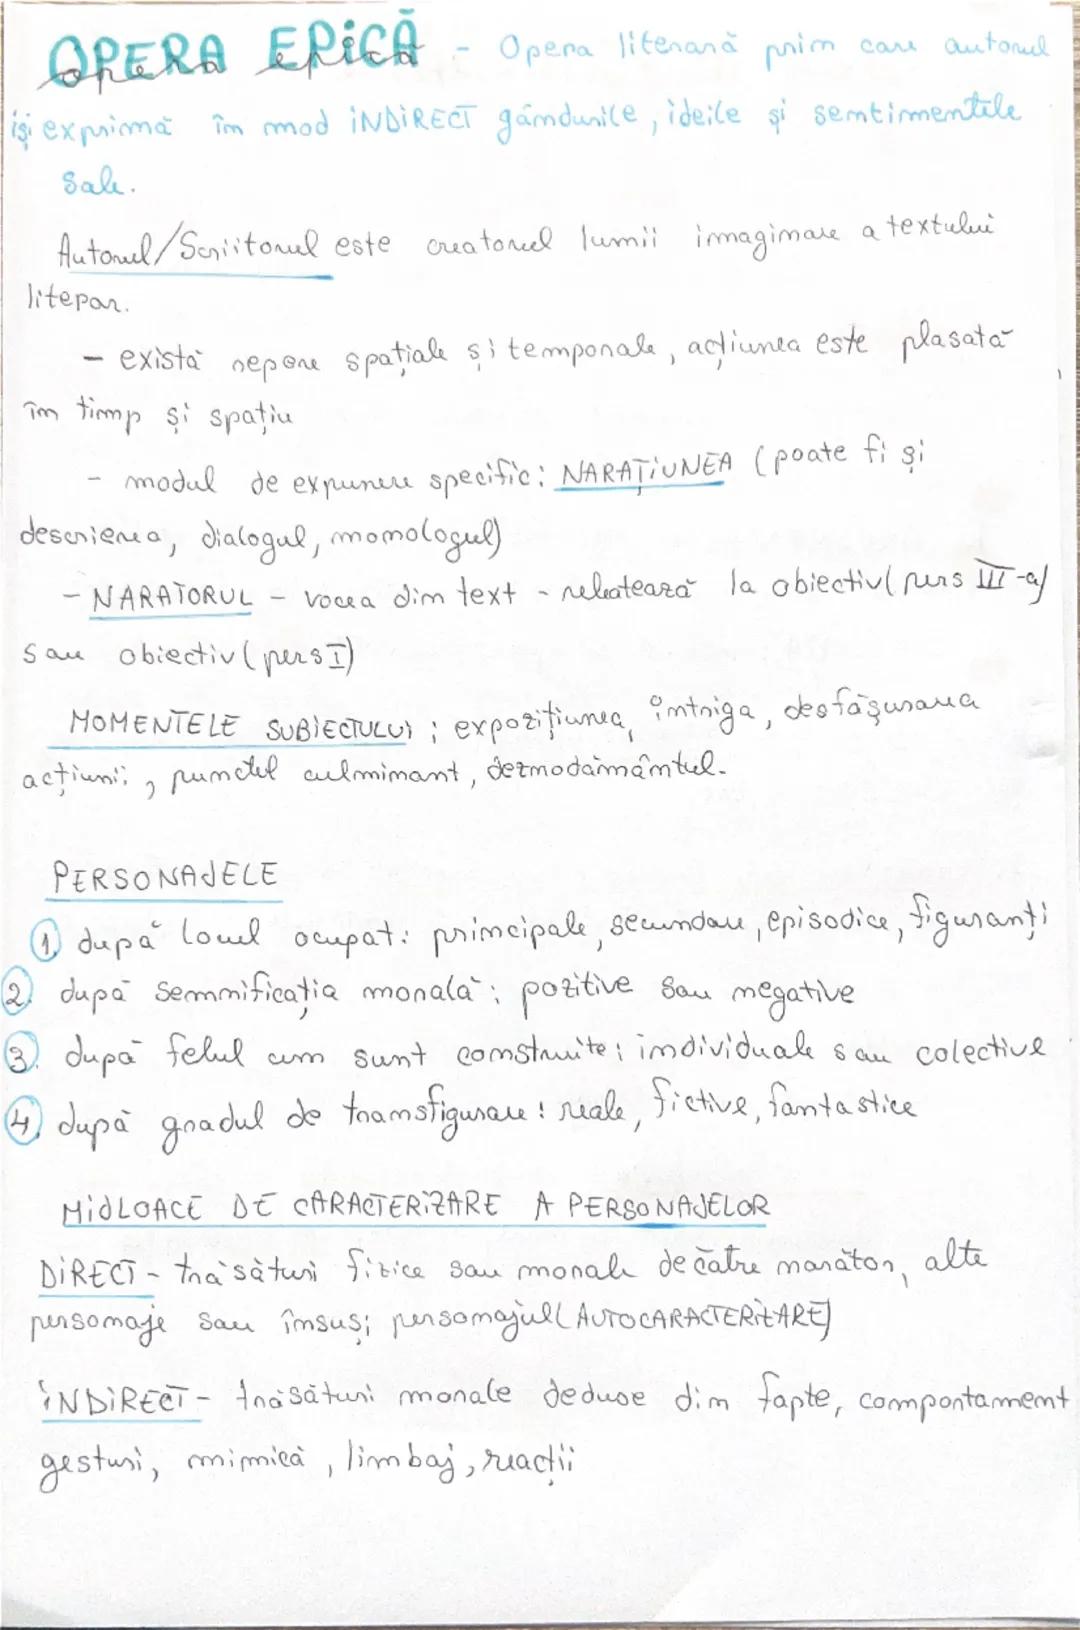 OPERA EPICĂ - Opera literară prin care autorul
își exprimă în mod INDIRECT gândurile, ideile și sentimentele
sale.
Autorul/Scriitorul este creatorul lumii imaginare a textului
literar.
- există repere spațiale și temporale, acțiunea este plasată
în timp și spațiu
- modul de expunere specific: NARAȚIUNEA (poate fi și
descrierea, dialogul, monologul)
- NARATORUL - vocea din text - relatează la obiectiv (pers III-a)
sau obiectiv (pers I)
MOMENTELE SUBIECTULUI: expozițiunea, intriga, desfășurarea
acțiunii, punctul culminant, deznodământul.
PERSONAJELE
1. după locul ocupat: principale, secundare, episodice, figuranți
2. după semnificația morală: pozitive sau negative
3. după felul cum sunt construite: individuale sau colective
4. după gradul de transfigurare: reale, fictive, fantastice
MIJLOACE DE CARACTERIZARE A PERSONAJELOR
DIRECT - trăsături fizice sau morale de către narator, alte
personaje sau însuși personajul (AUTOCARACTERIZARE)
INDIRECT - trăsături morale deduse din fapte, comportament
gesturi, mimică, limbaj, reacții